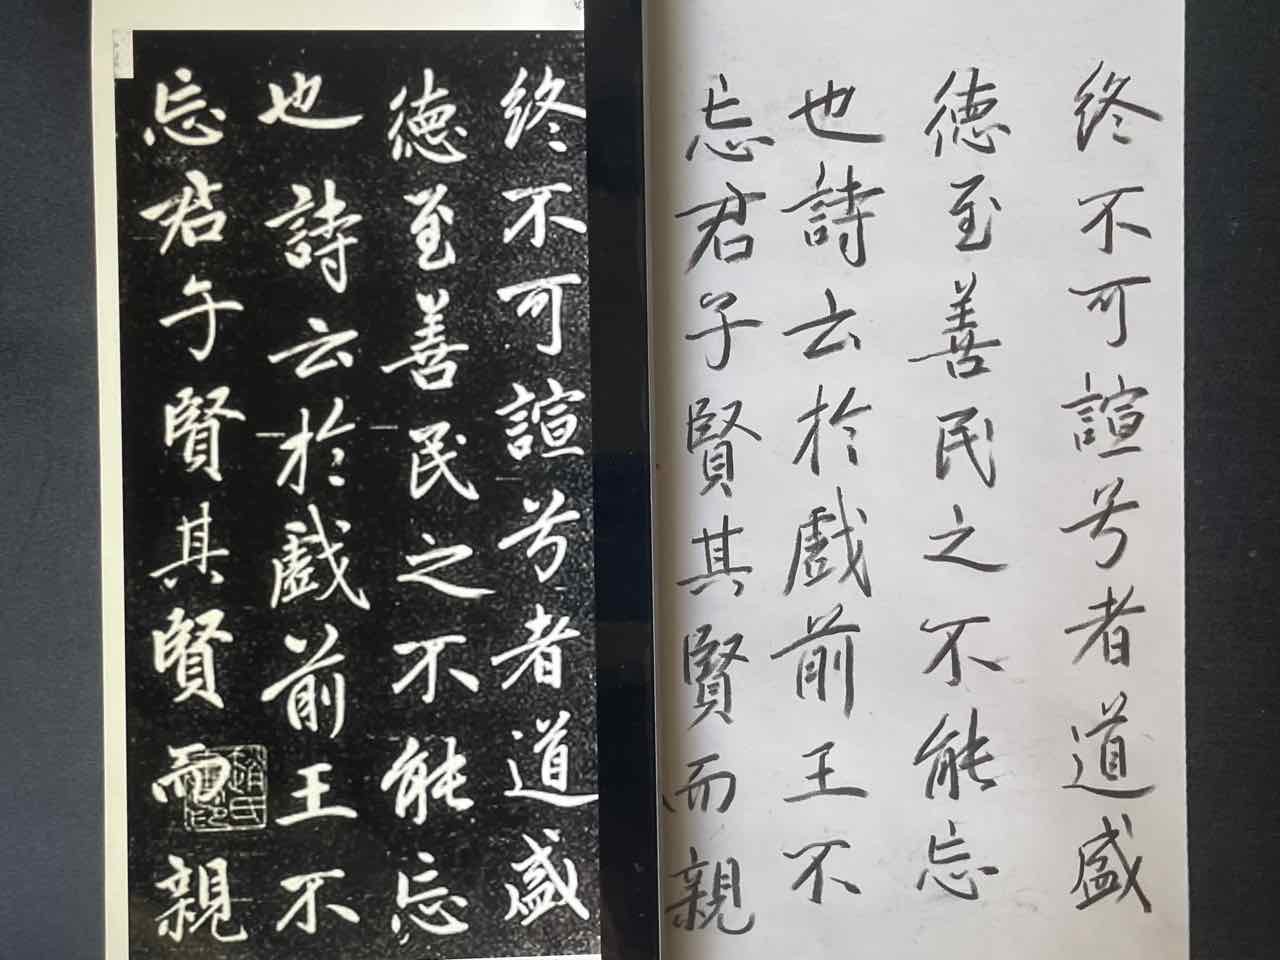 終不可諠兮者道盛
德至善民之不能忘
也詩云於戲前王不
忘君子賢其賢而親
終不可諠兮者道盛
德至善民之不能忘
也詩云於戲前王不
忘君子賢其賢而親